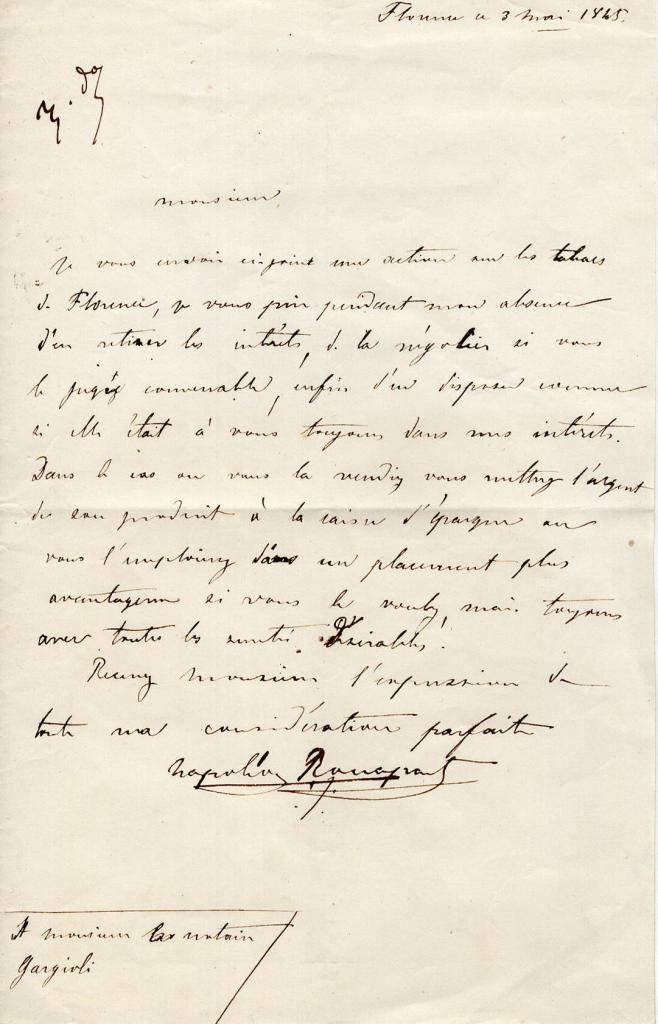 Florence ce 3 mai 1845.
monsieur
je vous envoie ci joint une action sur les tabacs
de Florence, je vous prie pendant mon absence
d'en retirer les intérêts, de la négocier si vous
le jugéz convenable, enfin d'en disposer comme
si elle était à vous toujours dans mes intérêts.
Dans le cas ou vous la vendiez vous mettrez l'argent
de son produit à la caisse d'épargne ou
vous l'emploierez dans un placement plus
avantageux si vous le voulez, mais toujours
avec toutes les suretés désirables.
Recevez monsieur l'expression de
toute ma considération parfaite
Napoléon Bonaparte
A monsieur le notaire
Gargioli